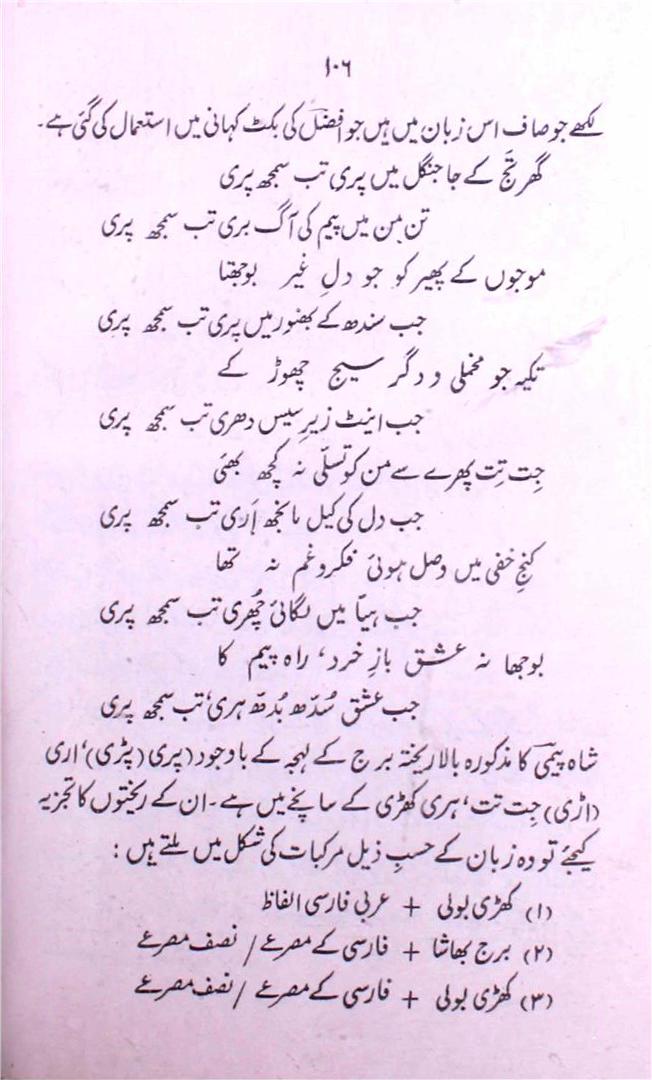 ۱۰۶
لکھے جو صاف اس زبان میں ہیں جو افضلؔ کی بکٹ کہانی میں استعمال کی گئی ہے۔
گھر تَج کے جا جنگل میں پری تب سمجھ پری
تن من میں پیم کی آگ بری تب سمجھ پری
موجوں کے پھیر کو جو دلِ غیر بوجھتا
جب سندھ کے بھنور میں پری تب سمجھ پری
تکیہ جو مخملی و دگر سیج چھوڑ کے
جب اینٹ زیرِ سیس دھری تب سمجھ پری
جِت تِت پھرے سے من کو تسلّی نہ کچھ بھئی
جب دل کی کیل مانجھ اِری تب سمجھ پری
کنجِ خفی میں وصل ہوئی فکر و غم نہ تھا
جب ہیّا میں لگائی چُھری تب سمجھ پری
بوجھا نہ عشق بازِ خرد، راہ پیم کا
جب عشق سُدّھ بُدّھ ہری، تب سمجھ پری
شاہ پیمیؔ کا مذکورہ بالا ریختہ برج کے لہجہ کے باوجود (پری (پڑی)، اری
(اڑی) جِت تت، ہری کھڑی کے سانچے میں ہے۔ ان کے ریختوں کا تجزیہ
کیجئے تو وہ زبان کے حسبِ ذیل مرکبات کی شکل میں ملتے ہیں :
(۱) کھڑی بولی + عربی فارسی الفاظ
(۲) برج بھاشا + فارسی کے مصرعے / نصف مصرعے
(۳) کھڑی بولی + فارسی کے مصرعے / نصف مصرعے